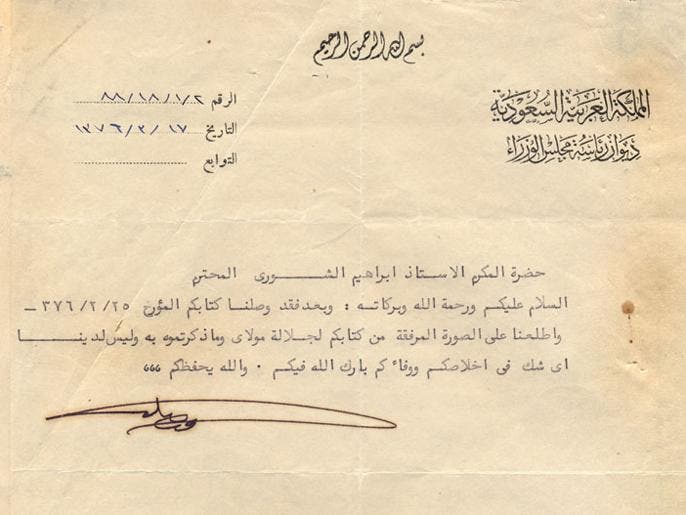 بسم الله الرحمن الرحيم
المملكة العربية السعودية
ديوان رئاسة مجلس الوزراء
الرقم ٨٨/١٨/١٧٢
التاريخ ١٣٧٦/٣/١٧
التوابع
حضرة المكرم الاستاذ ابراهيم الشورى المحترم
السلام عليكم ورحمة الله وبركاته : وبعد فقد وصلنا كتابكم المؤرخ ٣٧٦/٢/٢٥ –
واطلعنا على الصورة المرفقة من كتابكم لجلالة مولاى وماذكرتموه به وليس لدينا
اى شك فى اخلاصكم ووفائكم بارك الله فيكم . والله يحفظكم ،،،
فيصل